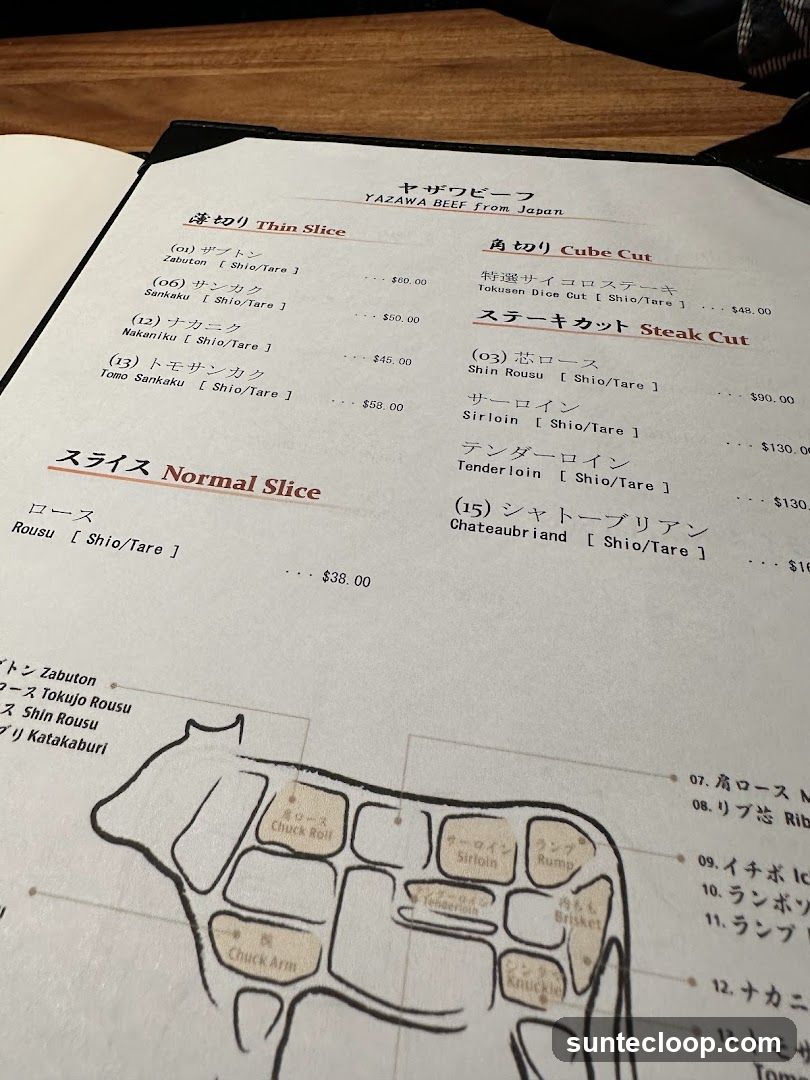 ヤザワビーフ
YAZAWA BEEF from Japan
薄切り Thin Slice
(01) ザブトン
Zabuton [ Shio/Tare ] ··· $60.00
(06) サンカク
Sankaku [ Shio/Tare ] ··· $50.00
(12) ナカニク
Nakaniku [ Shio/Tare ] ··· $45.00
(13) トモサンカク
Tomo Sankaku [ Shio/Tare ] ··· $58.00
スライス Normal Slice
ロース
Rousu [ Shio/Tare ] ··· $38.00
角切り Cube Cut
特選サイコロステーキ
Tokusen Dice Cut [ Shio/Tare ] ··· $48.00
ステーキカット Steak Cut
(03) 芯ロース
Shin Rousu [ Shio/Tare ] ··· $90.00
サーロイン
Sirloin [ Shio/Tare ] ··· $130.0
テンダーロイン
Tenderloin [ Shio/Tare ] ··· $130.
(15) シャトーブリアン
Chateaubriand [ Shio/Tare ] ··· $16
トン Zabuton
ロース Tokujo Rousu
ス Shin Rousu
ブリ Katakaburi
肩ロース
Chuck Roll
サーロイン
Sirloin
ランプ
Rump
テンダーロイン
Tenderloin
内もも
Brisket
腕
Chuck Arm
シンタマ
Knuckle
07. 肩ロース
08. リブ芯 Rib
09. イチボ
10. ランボソ
11. ランプ
12. ナカニ
suntecloop.com